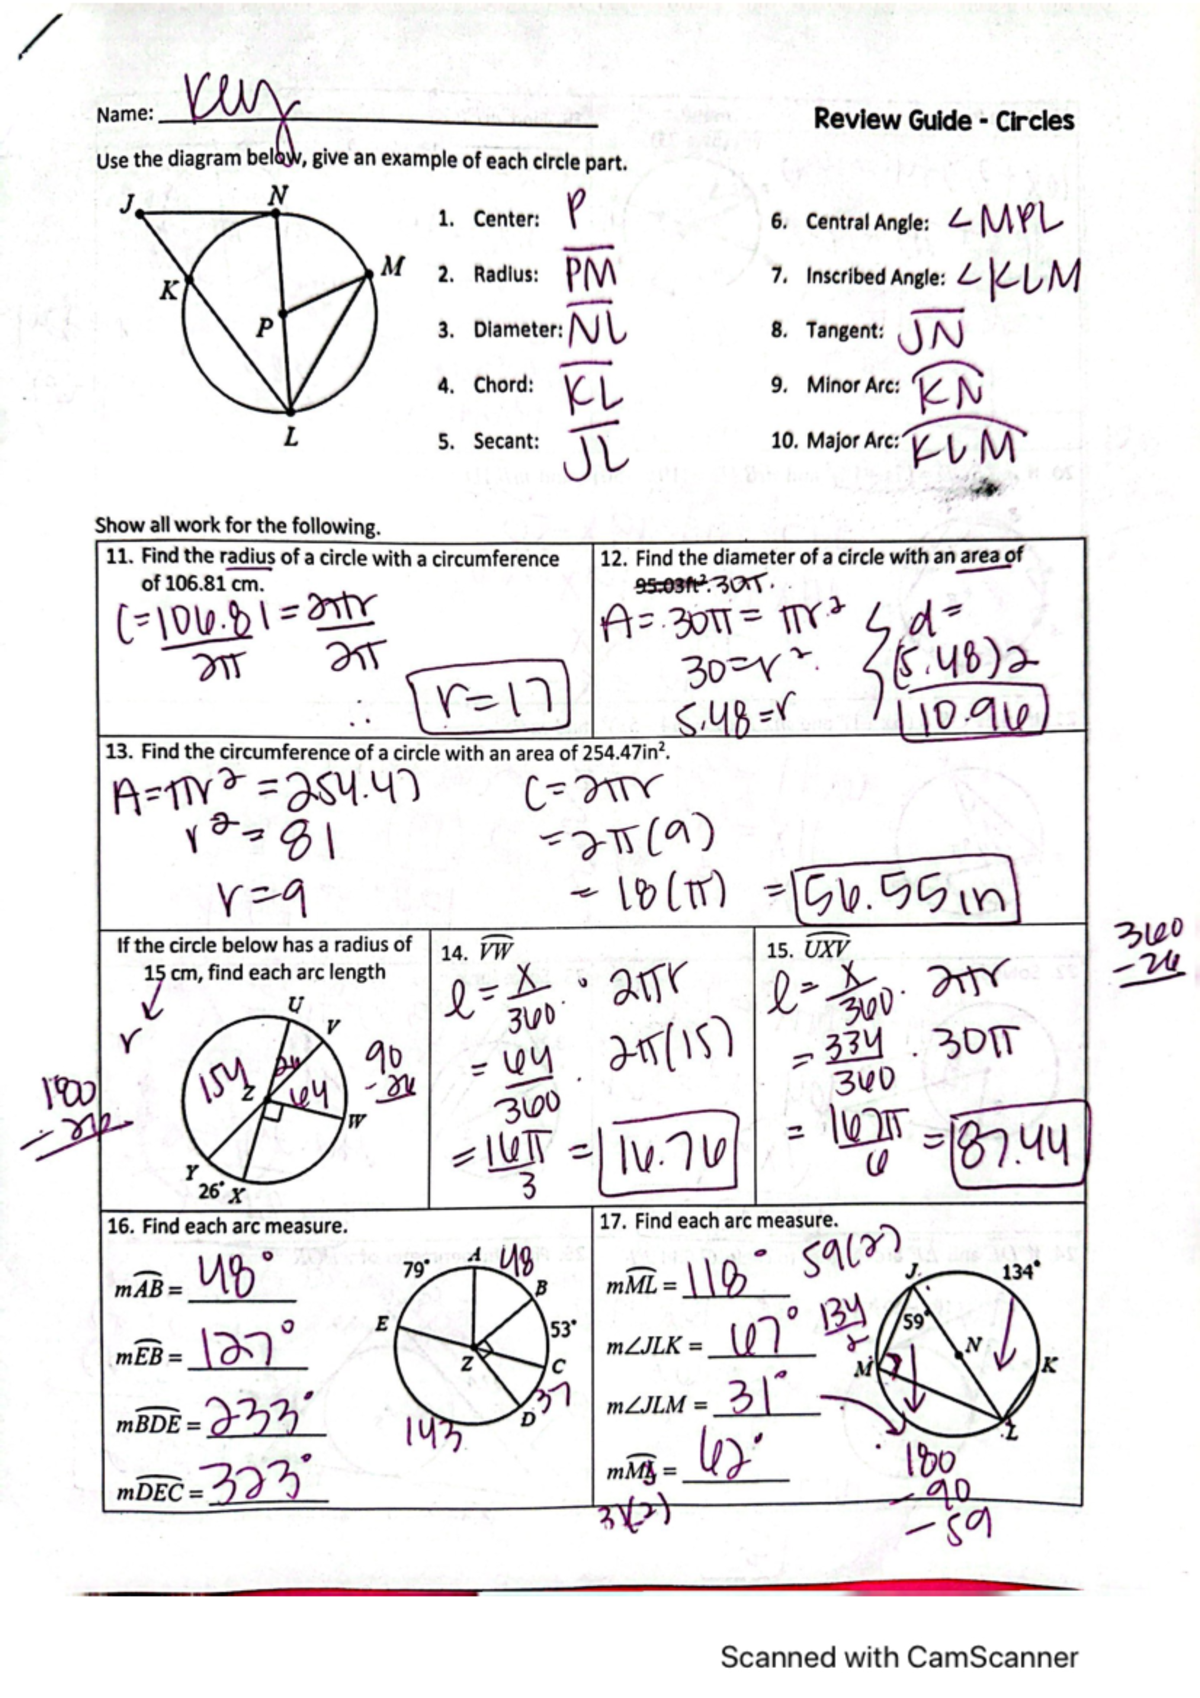 Name: Key
Review Guide - Circles
Use the diagram below, give an example of each circle part.
J N M K P L
1. Center: P
2. Radius: PM
3. Diameter: NL
4. Chord: KL
5. Secant: JL
6. Central Angle: ∠MPL
7. Inscribed Angle: ∠KLM
8. Tangent: JN
9. Minor Arc: KN
10. Major Arc: KLM
Show all work for the following.
11. Find the radius of a circle with a circumference
of 106.81 cm.
C=106.81=2πr
2π 2π
∴ r=17
12. Find the diameter of a circle with an area of
95.03ft². 30π.
A=30π=πr²
30=r²
5.48=r
d=
(5.48)2
10.96
13. Find the circumference of a circle with an area of 254.47in².
A=πr²=254.47
r²=81
r=9
C=2πr
=2π(9)
=18(π) =56.55in
If the circle below has a radius of
15 cm, find each arc length
r
U V W X Y Z
154 26 64
26°
90
-26
180
-26
14. VW
l=x/360 · 2πr
=64/360 · 2π(15)
=16π/3 = 16.76
15. UXV
l=x/360 · 2πr
=334/360 · 30π
=167π/6 =87.44
360
-26
16. Find each arc measure.
mAB = 48°
mEB = 127°
mBDE = 233°
mDEC = 323°
79° A 48
B
E 53°
Z C
37
D
143
17. Find each arc measure.
mML = 118° 59(2)
m∠JLK = 67° 134/2
m∠JLM = 31°
mMJ = 62°
31(2)
J 134°
59°
N K
M
L
180
-90
-59
Scanned with CamScanner